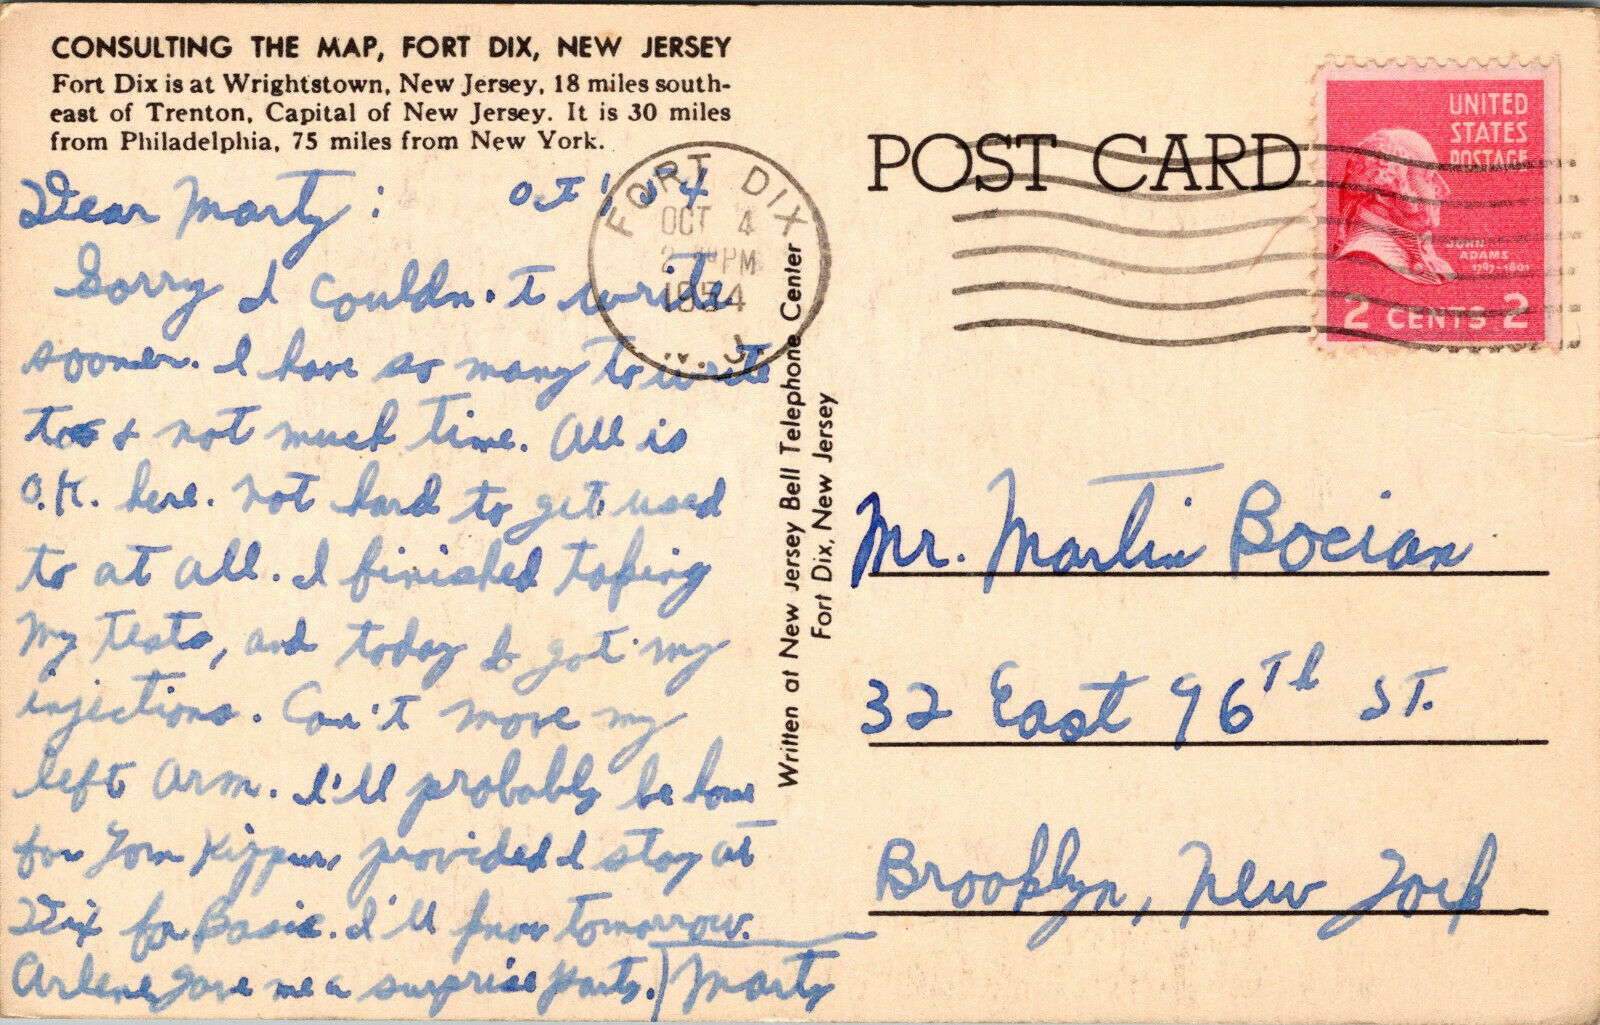 CONSULTING THE MAP, FORT DIX, NEW JERSEY
Fort Dix is at Wrightstown, New Jersey, 18 miles south-
east of Trenton, Capital of New Jersey. It is 30 miles
from Philadelphia, 75 miles from New York.
Dear Marty:
Sorry I couldn't write
sooner. I have so many to write
to & not much time. All is
O.K. here. Not hard to get used
to at all. I finished taking
my tests, and today I got my
injections. Can't move my
left arm. I'll probably be home
for Yom Kippur, provided I stay at
Dix for Basic. I'll know tomorrow.
Arlene gave me a surprise party.
Marty
FORT DIX
OCT 4
PM
1954
N. J.
Written at New Jersey Bell Telephone Center
Fort Dix, New Jersey
POST CARD
UNITED
STATES
POSTAGE
JOHN
ADAMS
1797-1801
2 CENTS 2
Mr. Martin Bocian
32 East 96Th ST.
Brooklyn, New York